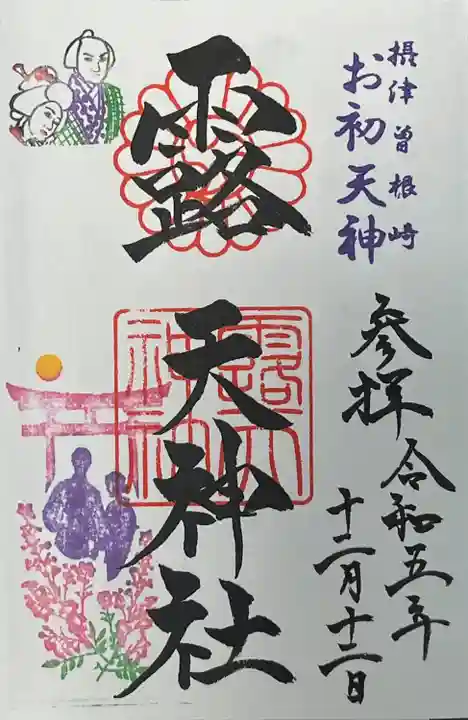 摂津曽根崎
お初天神
参拝 令和五年
十二月十二日
露
天神社
露天
神社